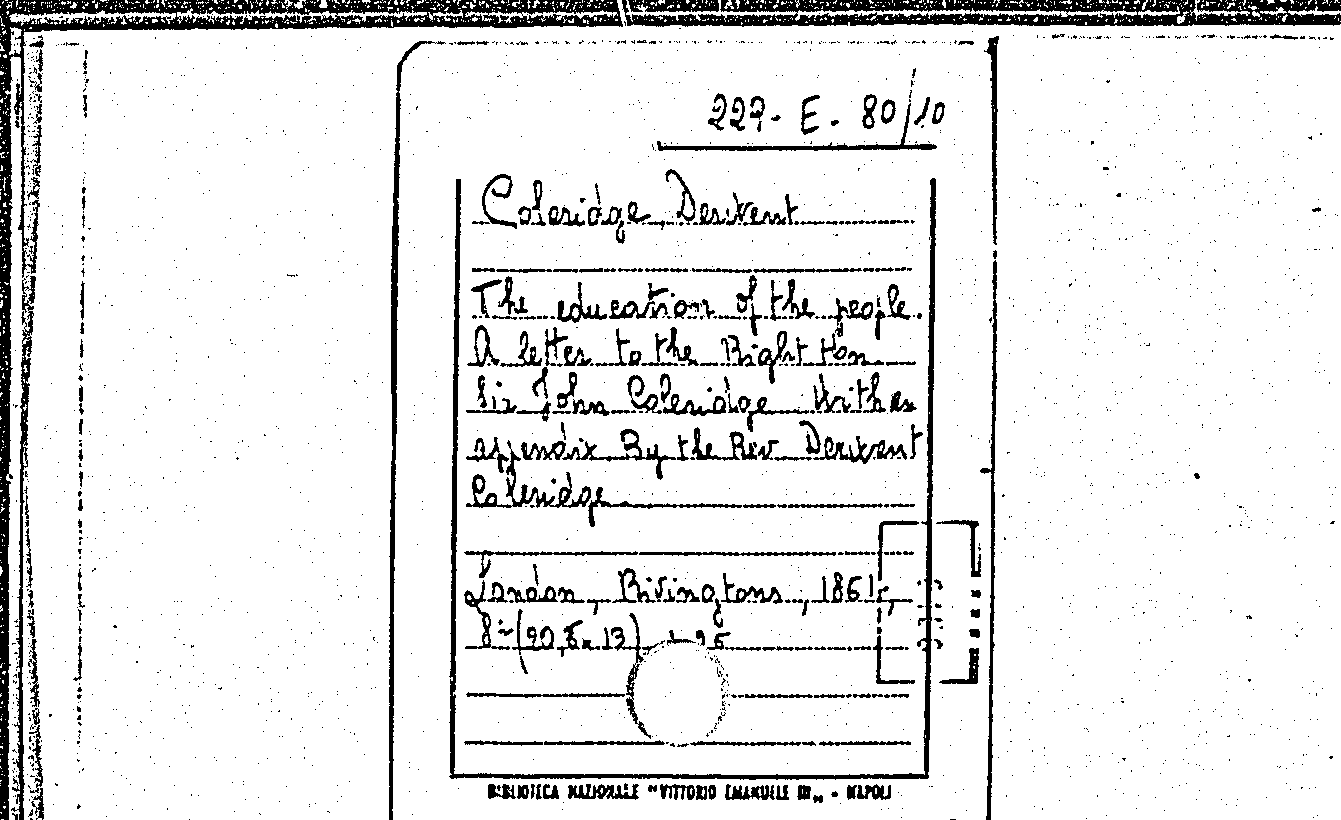 227. E. 80/10
Coleridge, Derwent
The education of the people.
A letter to the Right Hon.
Sir John Coleridge With an
appendix By the Rev. Derwent
Coleridge
London, Rivingtons, 1861,
8° (20,5x13)
BIBLIOTECA NAZIONALE "VITTORIO EMANUELE III" - NAPOLI